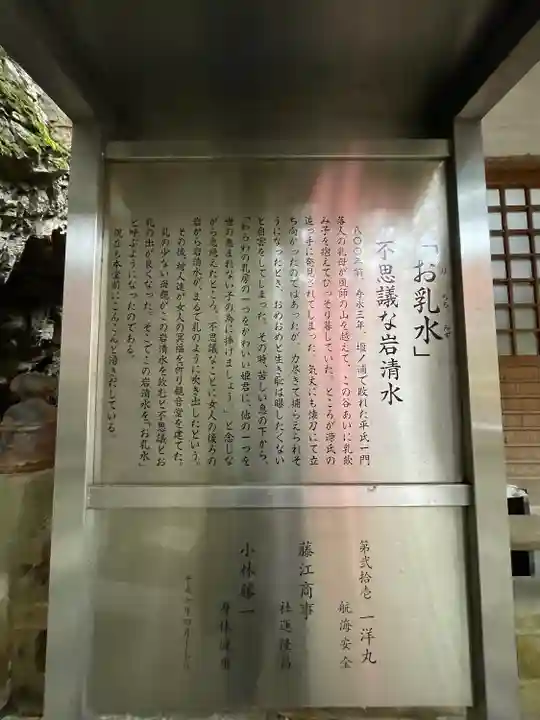 「お乳水」
不思議な岩清水
八〇〇年前、寿永三年、壇ノ浦で敗れた平氏一門
落人の乳母が須師の山を越えて、この谷あいに乳飲
み子を抱えてひっそり暮していた。ところが源氏の
追っ手に発見されてしまった。気丈にも懐刀にて立
ち向かったのではあったが、力尽きて捕らえられそ
うになったとき、おめおめと生き恥は曝したくない
と自害をしてしまった。その時、苦しい息の下から、
「わらわの乳房の一つをかわいい姫君に、他の一つを
世の恵まれない子の為に捧げましょう。」と念じな
がら息絶えたところ、不思議なことに女人の後ろの
岩から岩清水が、まるで乳のように吹き出したという。
その後、村人達が女人の冥福を祈り観音堂を建てた。
乳の少ない母親がこの岩清水を飲むと不思議とお
乳の出が良くなった。そこでこの岩清水を「お乳水」
と呼ぶようになったのである。
現在も本堂前にこんこんと湧きだしている。
第弐拾壱 一洋丸
航海安全
藤江商事
社運隆昌
小林勝一
身体健康